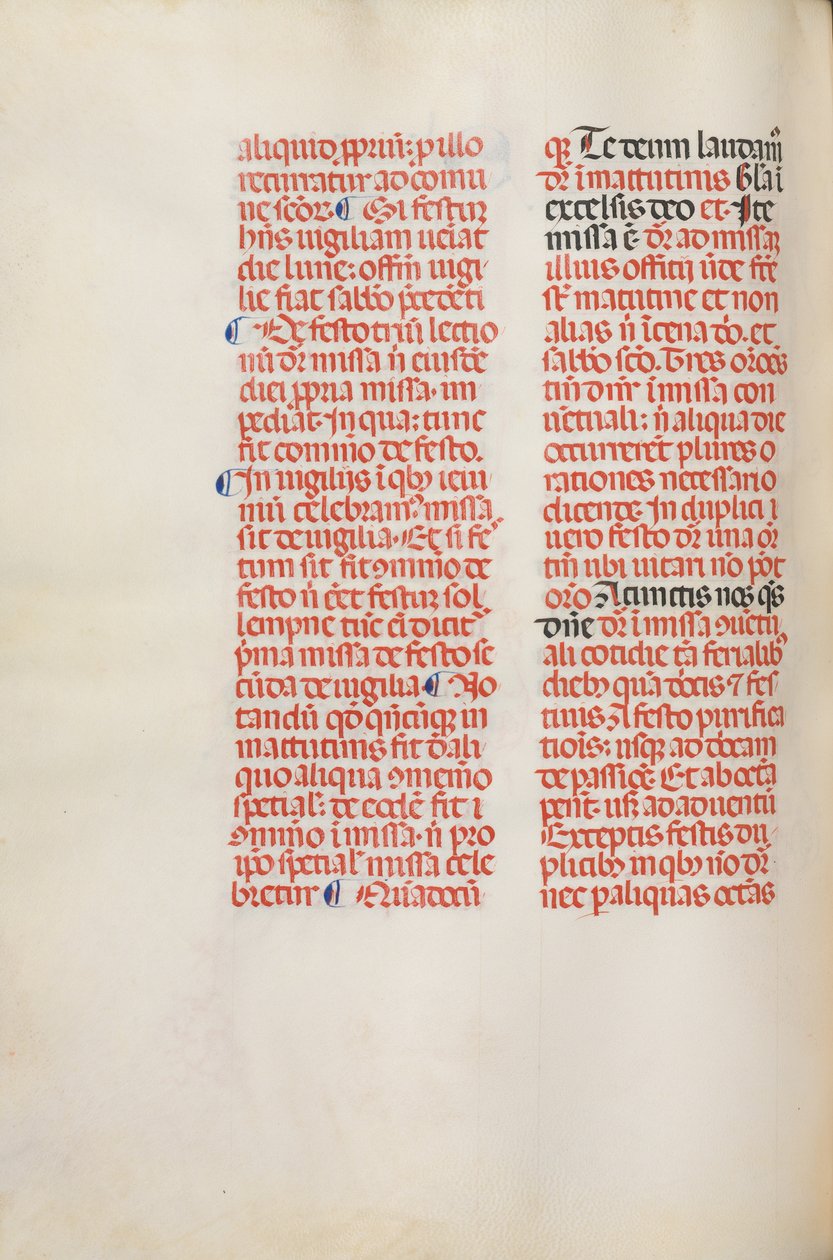 aliquid ꝓpriũ: ꝓ illo
recurratur ad comu
ne scõꝝ. ¶ Si festuꝝ
hñs uigiliam ueĩat
die lune: offm̃ uigi
lie fiat sabbõ p̃cedẽti
¶ De festo triũ lectio
nũ dr̃ missa ñ eiusdẽ
diei ꝓpria missa. im
pediat. In qua: tunc
fit com̃mo de festo.
¶ In uigilijs ĩ qbꝫ ieiu
niũ celebramꝰ missa
sit de uigilia. Et si fes
tum sit fit ꝯm̃mo de
festo ñ eẽt festuꝝ sol
lempne tũc eĩ dicit᷑
p̃ma missa de festo se
cũda de uigilia. ¶ No
tandũ qđ qñcũqꝫ in
mattutinis fit d̃ ali
quo aliqua ꝯmemõ
spetial᷑: de ecclẽ fit ĩ
ꝯm̃mo ĩ missa. ñ pro
ip̃o spetial᷑ missa cele
bretur ¶ Quãdocũ
qꝫ Te deum laudam̃
dr̃ ĩ mattutinis Gl̃a ĩ
excelsis deo et. Ite
missa ẽ. dr̃ ad missaꝫ
illius officij ũde fc̃e
st̃ matutine et non
alias ñ ĩ cena dõ. et
sabbõ sc̃o. Tres or̃oes
tm̃ dñr ĩ missa con
uẽtuali: ñ aliqua die
occurrerẽt plures o
rationes necessario
dicende. In duplici
uero festo dr̃ una or̃
tm̃ ubi uitari nõ põt
or̃o A cunctis nos q̃s
dñe dr̃ ĩ missa ꝯuẽtu
ali cotidie tã ferialibꝰ
diebꝫ quã dõcis ⁊ fes
tiuis A festo purifica
tiõis: usqꝫ ad dõcam
de passiõe Et ab octa
pent. usqꝫ ad aduentũ
Exceptis festis du
plicibꝫ in qbꝫ nõ dr̃
nec ꝑ aliquas octãs